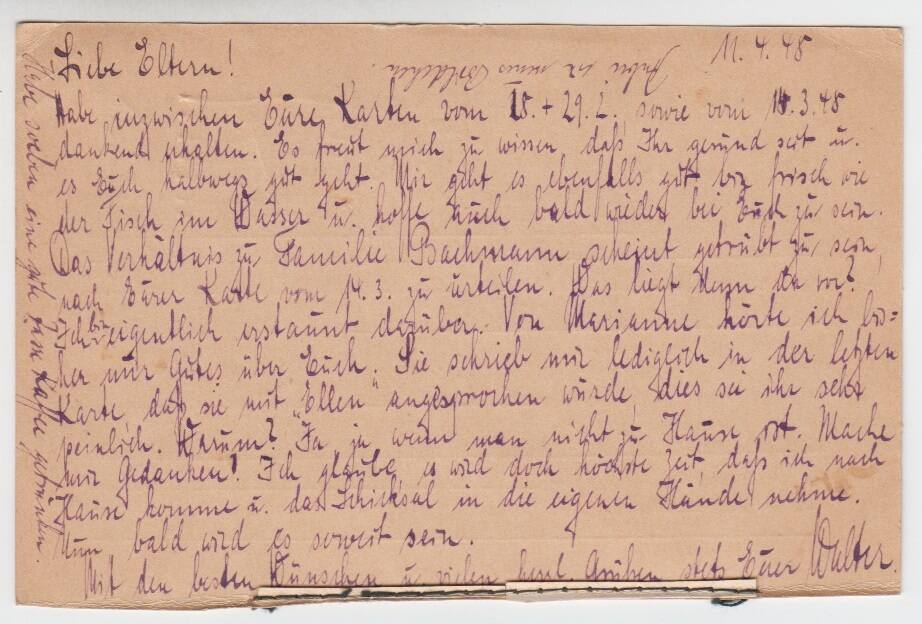 11.4.48
Liebe Eltern!
Habe inzwischen Eure Karten vom 15. + 29.2. sowie vom 14.3.48
dankend erhalten. Es freut mich zu wissen, daß Ihr gesund seit u.
es Euch halbwegs gut geht. Mir geht es ebenfalls gut bin frisch wie
der Fisch im Wasser u. hoffe auch bald wieder bei Euch zu sein.
Das Verhältnis zu Familie Bachmann scheint getrübt zu sein,
nach Eurer Karte vom 14.3. zu urteilen. Was liegt denn da vor?
Ich bin eigentlich erstaunt darüber. Von Marianne hörte ich bis=
her nur Gutes über Euch. Sie schrieb mir lediglich in der letzten
Karte, daß sie mit „Ellen" angesprochen würde, dies sei ihr sehr
peinlich. Warum? Ja ja wenn man nicht zu Hause ist. Mache
mir Gedanken! Ich glaube, es wird doch höchste Zeit, daß ich nach
Hause komme u. das Schicksal in die eigenen Hände nehme.
Nun bald wird es soweit sein.
Mit den besten Wünschen u. vielen herzl. Grüßen stets Euer Walter.
Habe soeben eine gute Tasse Kaffee getrunken.
ein neues Bildchen.